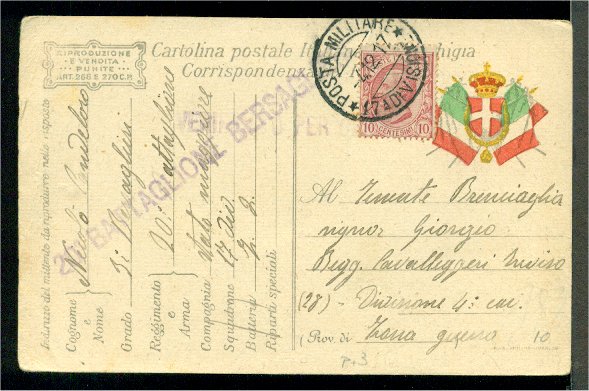 RIPRODUZIONE
E VENDITA
PUNITE
ART. 268 E 270 C.P.
Cartolina postale
Corrispondenza
POSTA MILITARE
17 A DIVISIONE
10 CENTESIMI 10
BATTAGLIONE BERSAGL
Indirizzo del mittente da riprodurre nella risposta
Cognome
e
Nome
Grado
Reggimento
e
Arma
20° Battaglione
Compagnia
Stato maggiore
Squadrone
17 Div.
Batteria
Riparti speciali
Al Tenente
signor Giorgio
Regg. Cavalleggeri Treviso
(28) - Divisione 4ª cav.
(Prov. di Zona guerra
10